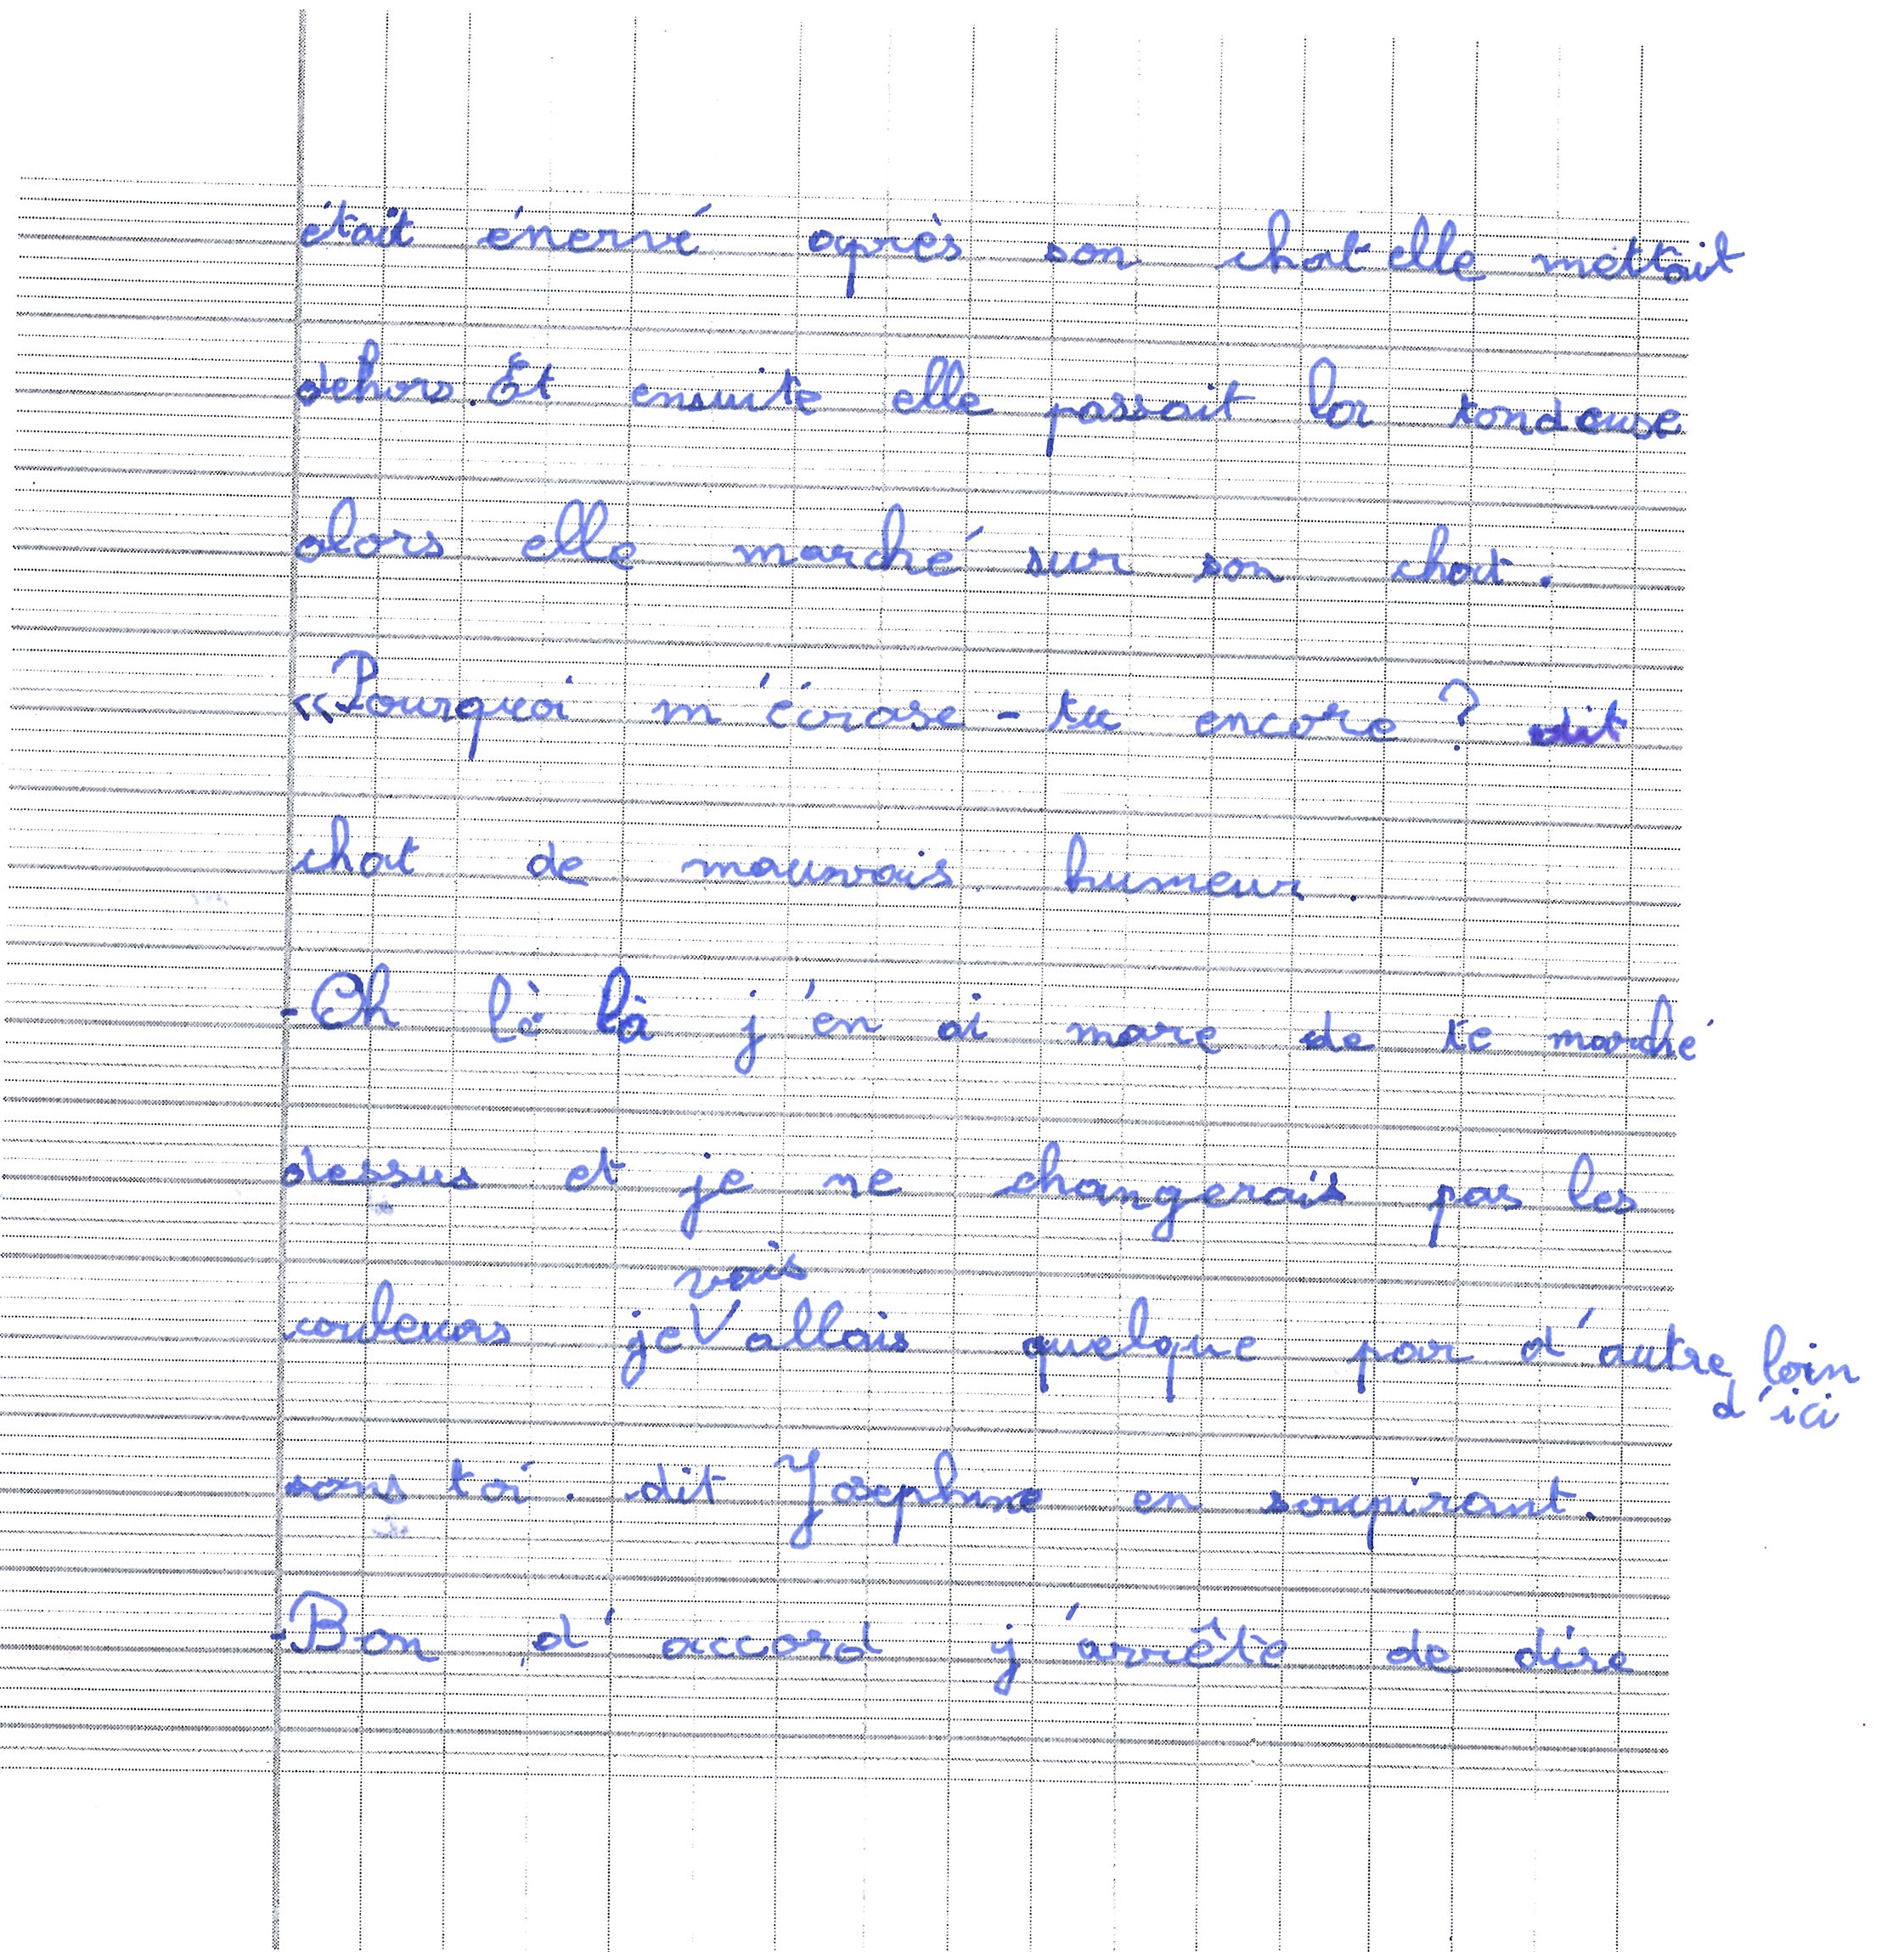 était énervé après son chat elle mettait
dehors. Et ensuite elle passait la tondeuse
alors elle marché sur son chat.
«Pourquoi m'écrase-tu encore ? dit
chat de mauvais humeur.
-Oh là là j'en ai mare de te marché
dessus et je ne changerais pas les
vais
couleurs je V allais quelque par d'autre loin
d'ici
sans toi. dit Josephine en soupirant.
-Bon d'accord j'arrête de dire